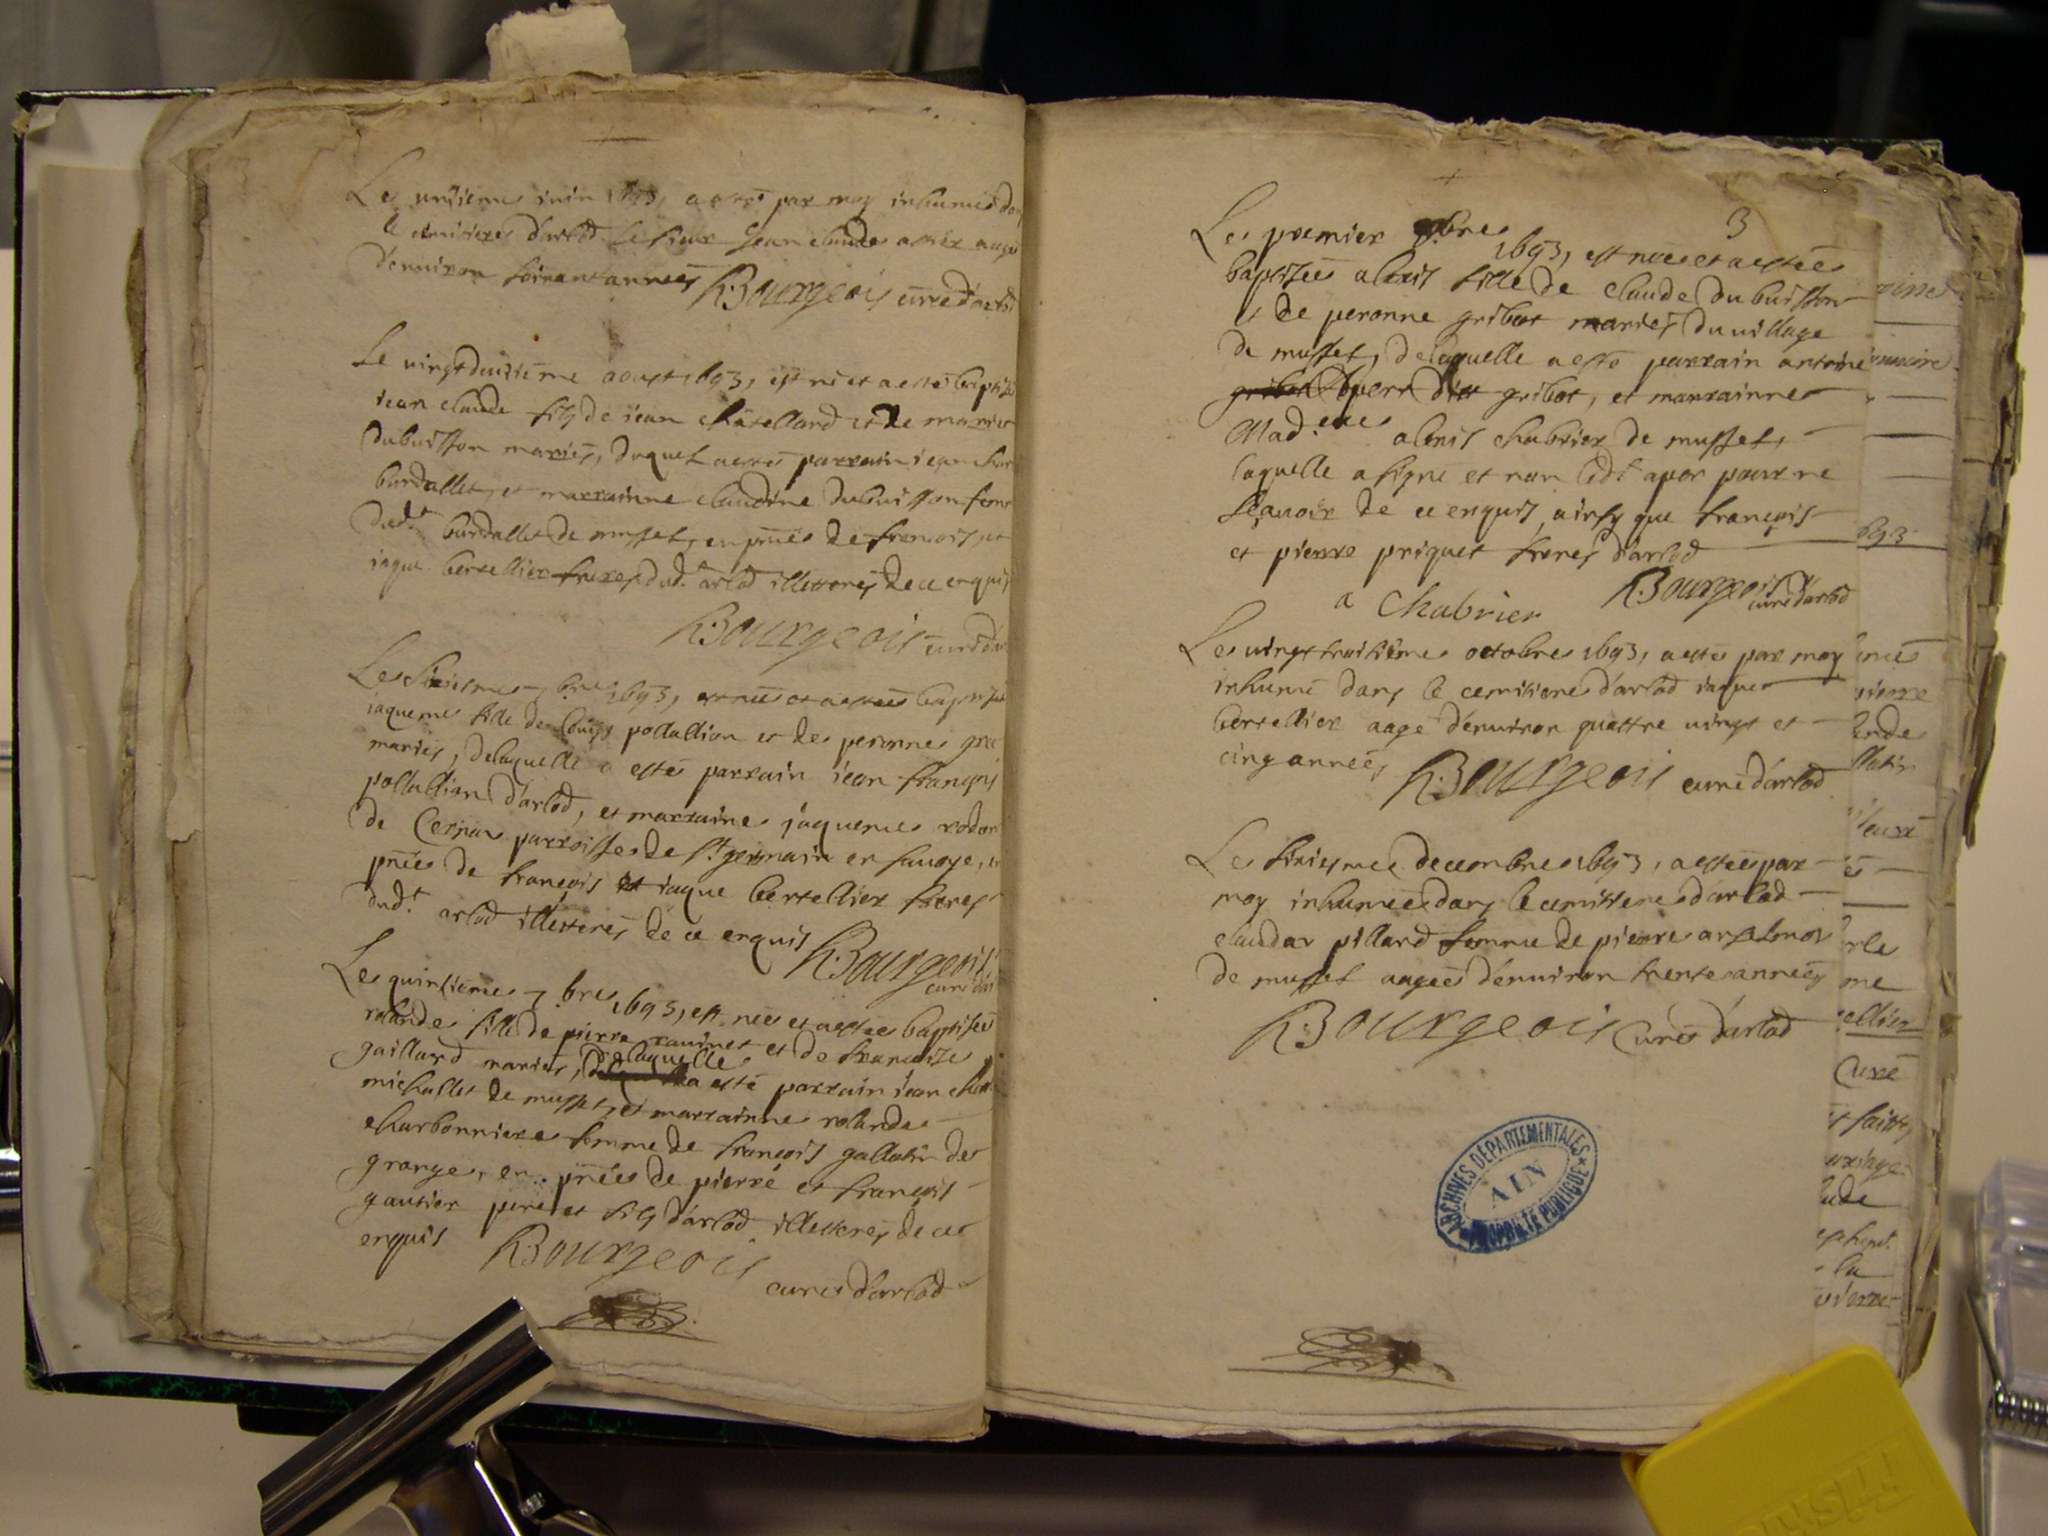 Le unsieme iuin 1693, a esté par moy inhumé dans
le cemitiere d'arlod le sieur Jean claude aagé
d'enuiron soixante années RBourgeois curé d'arlod
Le uingt deusiéme aoust 1693, est né et a esté baptisé
iean claude fils de iean chatellard et de marie
dubuisson mariés, duquel a esté parrain iean
burdallet, et marrainne claudine dubuisson feme
dud.t burdallet de musset, en pnce de francois, et
iaque bertellier freres dud.t arlod illetterés de ce enquis
RBourgeois curé d'ar
Le sixiesme 7bre 1693, est née et a estée baptisée
iaqueme fille de louys pollallion et de peronne
mariés, de laquelle a esté parrain iean françois
pollallion d'arlod, et marraine jaqueme rodon
de Cernex parroisse de st germain en sauoye, en
pnce de françois et iaque bertellier freres
dud.t arlod illetterés de ce enquis RBourgeois
curé d'ar
Le quinsieme 7bre 1693, est née et a estée baptisée
rolande fille de pierre rauinet et de francoise
gaillard mariés, de laquelle a esté parrain iean
michallet de musset, et marrainne rolande
charbonniere femme de françois gallatin de
grange, en pnce de pierre et françois
gautier pere et fils d'arlod illetterés de ce
enquis RBourgeois curé d'arlod
3
Le premier 9bre 1693, est née et a estée
baptisée alexis fille de claude dubuisson
et de peronne gribot mariés du uillage
de musset, de laquelle a esté parrain antoine
dit gribot, et marrainne
Mad.elle alexis chabrier de musset,
laquelle a signé et non led.t pour ne
sçauoir de ce enquis, ainsy que françois
et pierre priquet freres d'arlod
RBourgeois curé d'arlod
a Chabrier
Le uingt troisiéme octobre 1693, a esté par moy
inhumé dans le cemitiere d'arlod iaque
bertellier aagé d'enuiron quattre uingt et
cinq années RBourgeois curé d'arlod
Le sixiesme decembre 1693, a estée par
moy inhumée dans le cemittiere d'arlod
claudaz pillard femme de pierre anselmoz
de musset aagée d'enuiron trente années
RBourgeois Curé d'arlod
693
Curé
ARCHIVES DÉPARTEMENTALES
AIN
PROPRIÉTÉ PUBLIQUE